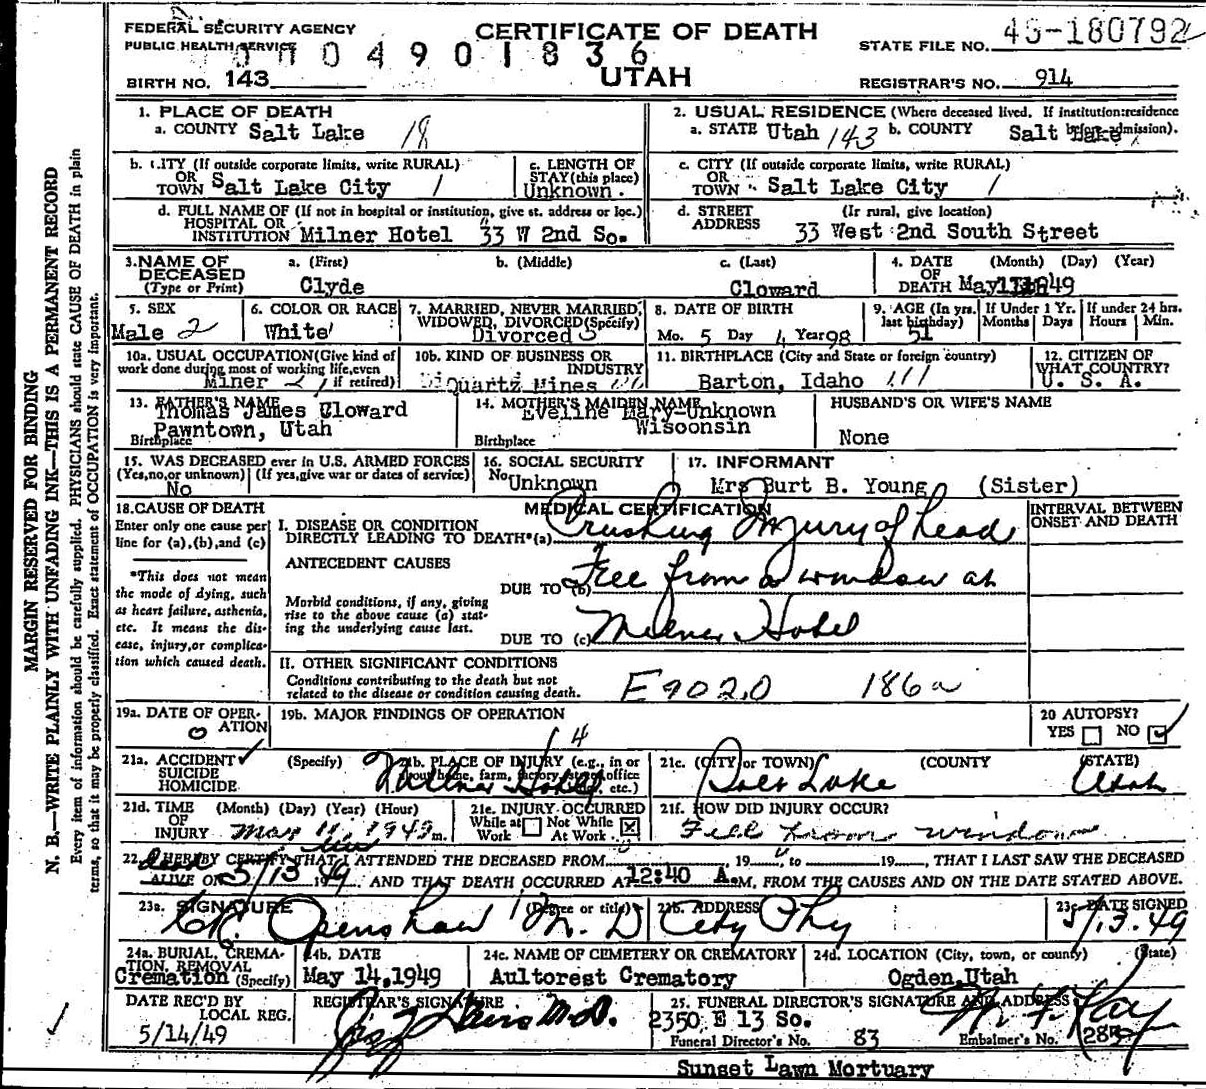 FEDERAL SECURITY AGENCY
PUBLIC HEALTH SERVICE
CERTIFICATE OF DEATH
UTAH
0490 1836
STATE FILE NO. 49-180792
BIRTH NO. 143
REGISTRAR'S NO. 914
MARGIN RESERVED FOR BINDING
N. B.—WRITE PLAINLY WITH UNFADING INK—THIS IS A PERMANENT RECORD
Every item of information should be carefully supplied. PHYSICIANS should state CAUSE OF DEATH in plain
terms, so that it may be properly classified. Exact statement of OCCUPATION is very important.
1. PLACE OF DEATH
a. COUNTY Salt Lake 18
2. USUAL RESIDENCE (Where deceased lived. If institution: residence before admission).
a. STATE Utah 143 b. COUNTY Salt Lake
b. CITY (If outside corporate limits, write RURAL)
OR
TOWN Salt Lake City 1
c. LENGTH OF
STAY (this place)
Unknown.
c. CITY (If outside corporate limits, write RURAL)
OR
TOWN Salt Lake City 1
d. FULL NAME OF (If not in hospital or institution, give st. address or loc.)
HOSPITAL OR
INSTITUTION Milner Hotel 33 W 2nd So.
d. STREET (If rural, give location)
ADDRESS
33 West 2nd South Street
3. NAME OF
DECEASED
(Type or Print)
a. (First)
Clyde
b. (Middle)
c. (Last)
Cloward
4. DATE (Month) (Day) (Year)
OF
DEATH May 1949
5. SEX
Male 2
6. COLOR OR RACE
White
7. MARRIED, NEVER MARRIED,
WIDOWED, DIVORCED (Specify)
Divorced 3
8. DATE OF BIRTH
Mo. 5 Day 4 Year 98
9. AGE (In yrs. last birthday)
51
If Under 1 Yr.
Months Days
If under 24 hrs.
Hours Min.
10a. USUAL OCCUPATION (Give kind of
work done during most of working life, even
if retired)
Miner
10b. KIND OF BUSINESS OR
INDUSTRY
Quartz Mines
11. BIRTHPLACE (City and State or foreign country)
Barton, Idaho
12. CITIZEN OF
WHAT COUNTRY?
U. S. A.
13. FATHER'S NAME
Thomas James Cloward
Pawntown, Utah
Birthplace
14. MOTHER'S MAIDEN NAME
Eveline Mary-Unknown
Wisconsin
Birthplace
HUSBAND'S OR WIFE'S NAME
None
15. WAS DECEASED ever in U.S. ARMED FORCES
(Yes, no, or unknown) (If yes, give war or dates of service)
No
16. SOCIAL SECURITY
No Unknown
17. INFORMANT
Mrs Burt B. Young (Sister)
18. CAUSE OF DEATH
Enter only one cause per
line for (a), (b), and (c)
*This does not mean
the mode of dying, such
as heart failure, asthenia,
etc. It means the dis-
ease, injury, or complica-
tion which caused death.
MEDICAL CERTIFICATION
INTERVAL BETWEEN
ONSET AND DEATH
I. DISEASE OR CONDITION
DIRECTLY LEADING TO DEATH*(a) Crushing Injury of head
ANTECEDENT CAUSES
DUE TO (b) Fell from a window at
Morbid conditions, if any, giving
rise to the above cause (a) stat-
ing the underlying cause last.
DUE TO (c) Milner Hotel
II. OTHER SIGNIFICANT CONDITIONS
Conditions contributing to the death but not
related to the disease or condition causing death.
E902.0 186a
19a. DATE OF OPER-
ATION
0
19b. MAJOR FINDINGS OF OPERATION
20 AUTOPSY?
YES NO ✓
21a. ACCIDENT ✓
SUICIDE
HOMICIDE
(Specify)
21b. PLACE OF INJURY (e.g., in or
about home, farm, factory, street, office
etc.)
Milner Hotel
21c. (CITY or TOWN) (COUNTY) (STATE)
Salt Lake Utah
21d. TIME (Month) (Day) (Year) (Hour)
OF
INJURY May 11, 1949 m.
21e. INJURY OCCURRED
While at Work
Not While At Work X
21f. HOW DID INJURY OCCUR?
Fell from window
22. I HEREBY CERTIFY THAT I ATTENDED THE DECEASED FROM , 19 , to 19 , THAT I LAST SAW THE DECEASED
ALIVE ON 5/13 49 AND THAT DEATH OCCURRED AT 12:40 A.M, FROM THE CAUSES AND ON THE DATE STATED ABOVE.
23a. SIGNATURE (Degree or title)
Openshaw M. D
23b. ADDRESS
City Phy
23c. DATE SIGNED
5/13.49
24a. BURIAL, CREMA-
TION, REMOVAL
Cremation (Specify)
24b. DATE
May 14, 1949
24c. NAME OF CEMETERY OR CREMATORY
Aultorest Crematory
24d. LOCATION (City, town, or county) (State)
Ogden, Utah
DATE REC'D BY
LOCAL REG.
5/14/49
REGISTRAR'S SIGNATURE
M.D.
25. FUNERAL DIRECTOR'S SIGNATURE AND ADDRESS
2350 E 13 So.
Funeral Director's No. 83
Embalmer's No. 285
Sunset Lawn Mortuary